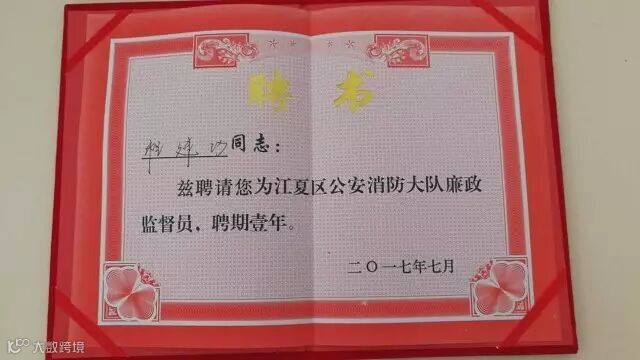 聘书
同志：
兹聘请您为江夏区公安消防大队廉政
监督员，聘期壹年。
二〇一七年七月
大数跨境